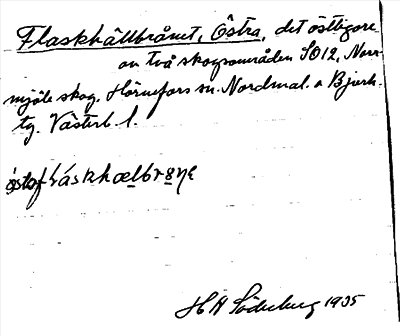 Flaskhällbrånet, Östra, det östligare
av två skogsområden SO12, Norr-
mjöle skog. Hörnefors sn. Nordmal. o Bjurh.
tg. Västerb. l.
H A Söderberg 1935